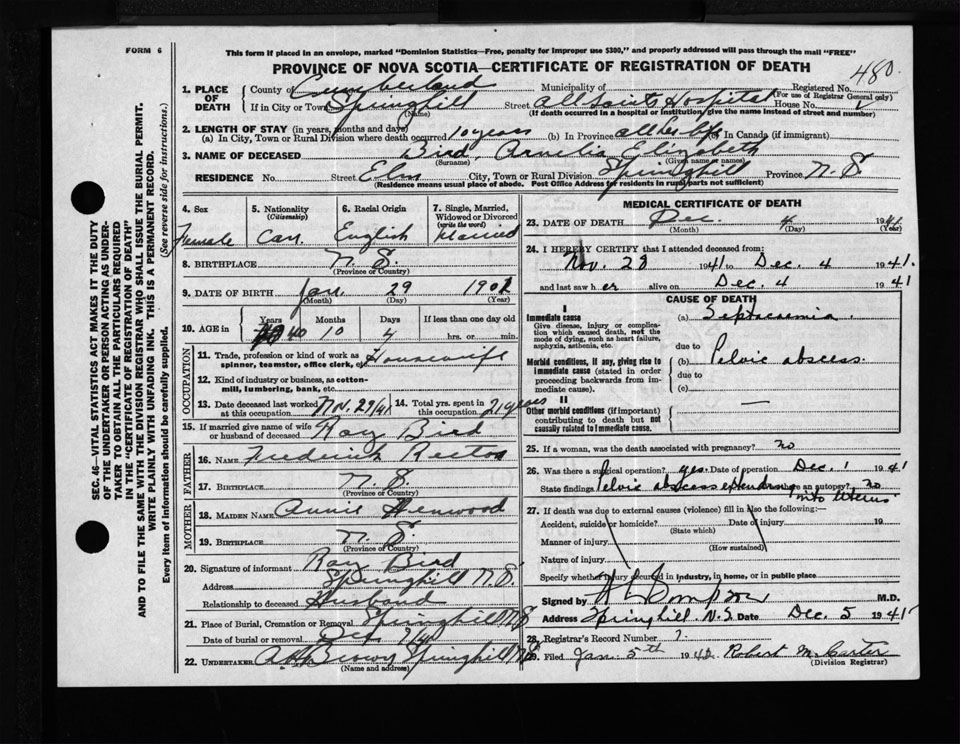 FORM 6
480.
This form if placed in an envelope, marked "Dominion Statistics—Free, penalty for improper use $300," and properly addressed will pass through the mail "FREE"
PROVINCE OF NOVA SCOTIA—CERTIFICATE OF REGISTRATION OF DEATH
SEC. 46—VITAL STATISTICS ACT MAKES IT THE DUTY
OF THE UNDERTAKER OR PERSON ACTING AS UNDER-
TAKER TO OBTAIN ALL THE PARTICULARS REQUIRED
IN THE "CERTIFICATE OF REGISTRATION OF DEATH"
AND TO FILE THE SAME WITH THE DIVISION REGISTRAR WHO SHALL ISSUE THE BURIAL PERMIT.
WRITE PLAINLY WITH UNFADING INK. THIS IS A PERMANENT RECORD.
Every item of information should be carefully supplied. (See reverse side for instructions.)
1. PLACE OF DEATH County of Cumberland Municipality of Registered No.
(For use of Registrar General only)
If in City or Town Springhill Street All Saints Hospital House No.
(Name) (If death occurred in a hospital or institution, give the name instead of street and number)
2. LENGTH OF STAY (in years, months and days)
(a) In City, Town or Rural Division where death occurred 10 years (b) In Province all her life (c) In Canada (if immigrant)
3. NAME OF DECEASED Bird, Amelia Elizabeth
(Surname) (Given name or names)
RESIDENCE No. Street Elm City, Town or Rural Division Springhill Province N.S.
(Residence means usual place of abode. Post Office Address for residents in rural parts not sufficient)
4. Sex Female
5. Nationality (Citizenship) Can
6. Racial Origin English
7. Single, Married, Widowed or Divorced (write the word) Married
8. BIRTHPLACE N.S.
(Province or Country)
9. DATE OF BIRTH Jan. 29 1901
(Month) (Day) (Year)
10. AGE in Years Months Days If less than one day old
40 10 4 hrs. or min.
OCCUPATION
11. Trade, profession or kind of work as spinner, teamster, office clerk, etc. Housewife
12. Kind of industry or business, as cotton-mill, lumbering, bank, etc.
13. Date deceased last worked at this occupation Nov. 29/41 14. Total yrs. spent in this occupation 21 years
15. If married give name of wife or husband of deceased Ray Bird
FATHER
16. NAME Frederick
17. BIRTHPLACE N.S.
MOTHER
18. MAIDEN NAME Annie Henwood
19. BIRTHPLACE N.S.
(Province or Country)
20. Signature of informant Ray Bird
Address Springhill N.S.
Relationship to deceased Husband
21. Place of Burial, Cremation or Removal Springhill N.S.
Date of burial or removal Dec 7/41
22. UNDERTAKER Brown Springhill N.S.
(Name and address)
MEDICAL CERTIFICATE OF DEATH
23. DATE OF DEATH Dec. 4 1941
(Month) (Day) (Year)
24. I HEREBY CERTIFY that I attended deceased from:
Nov. 28 1941 to Dec. 4 1941.
and last saw her alive on Dec. 4 1941
CAUSE OF DEATH
I
Immediate cause
Give disease, injury or complication which caused death, not the mode of dying, such as heart failure, asphyxia, asthenia, etc.
(a) Septacaemia.
due to
Morbid conditions, if any, giving rise to immediate cause (stated in order proceeding backwards from immediate cause).
(b) Pelvic abscess.
due to
(c)
II
Other morbid conditions (if important) contributing to death but not causally related to immediate cause.
—
25. If a woman, was the death associated with pregnancy? no
26. Was there a surgical operation? yes. Date of operation Dec. 1 1941
State findings Pelvic abscess extending into uterus Was there an autopsy? no
27. If death was due to external causes (violence) fill in also the following:—
Accident, suicide or homicide? Date of injury 19
(State which)
Manner of injury
(How sustained)
Nature of injury
Specify whether injury occurred in industry, in home, or in public place
Signed by M.D.
Address Springhill. N.S. Date Dec. 5 1941
28. Registrar's Record Number 7.
29. Filed Jan. 5th 1942 Robert M. Carter
(Division Registrar)